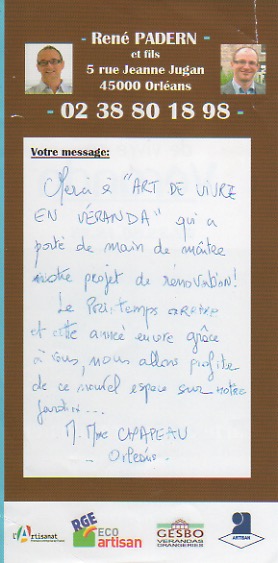 - René PADERN -
et fils
5 rue Jeanne Jugan
45000 Orléans
- 02 38 80 18 98 -
Votre message:
Merci à "ART DE VIVRE
EN VÉRANDA" qui a
porté de main de maître
notre projet de rénovation!
Le Printemps arrive
et cette année encore grâce
à vous, nous allons profiter
de ce nouvel espace sur notre
jardin...
M. Mme CHAPEAU
- Orléans -
l'Artisanat
RGE
ECO
artisan
GESBO
VERANDAS
ORANGERIES
ARTISAN